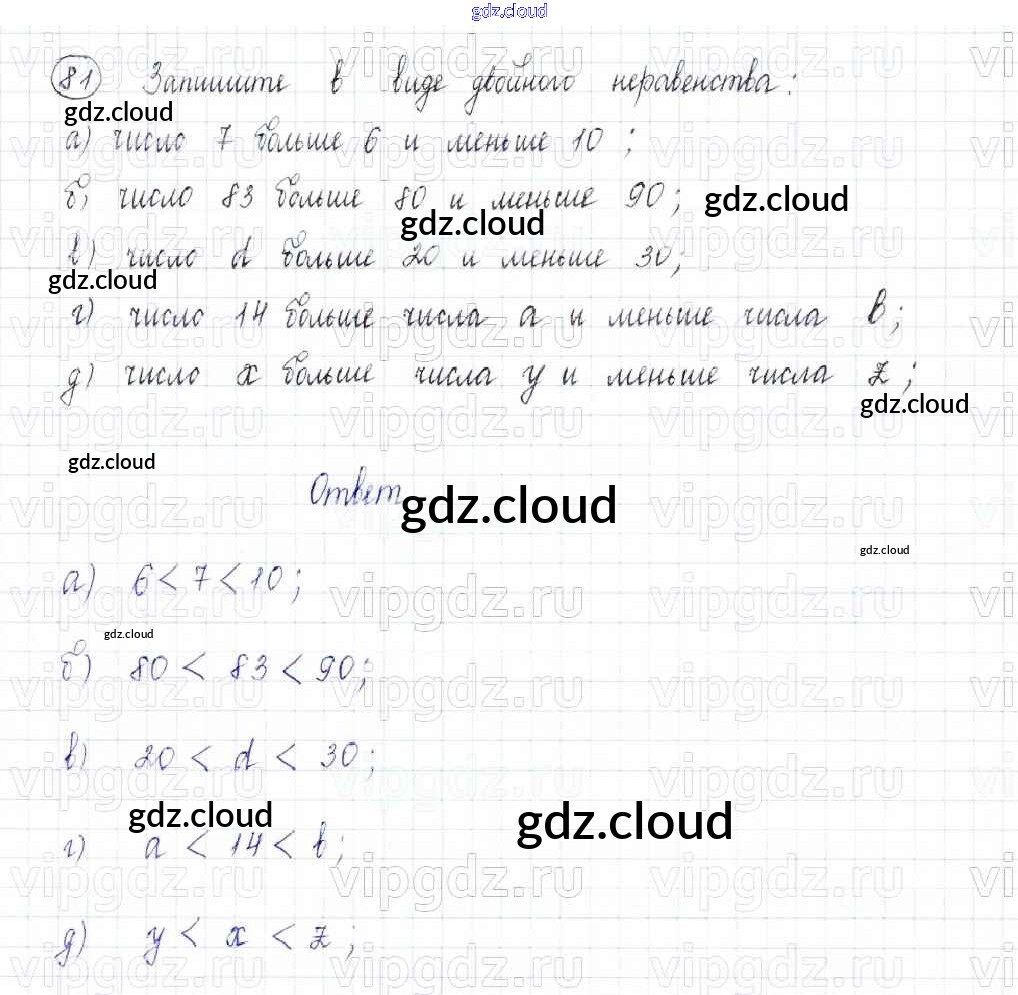 gdz.cloud
81 Запишите в виде двойного неравенства:
gdz.cloud
а) число 7 больше 6 и меньше 10;
б) число 83 больше 80 и меньше 90; gdz.cloud
gdz.cloud
в) число d больше 20 и меньше 30;
gdz.cloud
г) число 14 больше числа a и меньше числа b;
д) число x больше числа y и меньше числа z;
gdz.cloud
gdz.cloud
Ответ
gdz.cloud
gdz.cloud
а) 6 < 7 < 10;
gdz.cloud
б) 80 < 83 < 90;
в) 20 < d < 30;
gdz.cloud gdz.cloud
г) a < 14 < b;
д) y < x < z;
vipgdz.ru